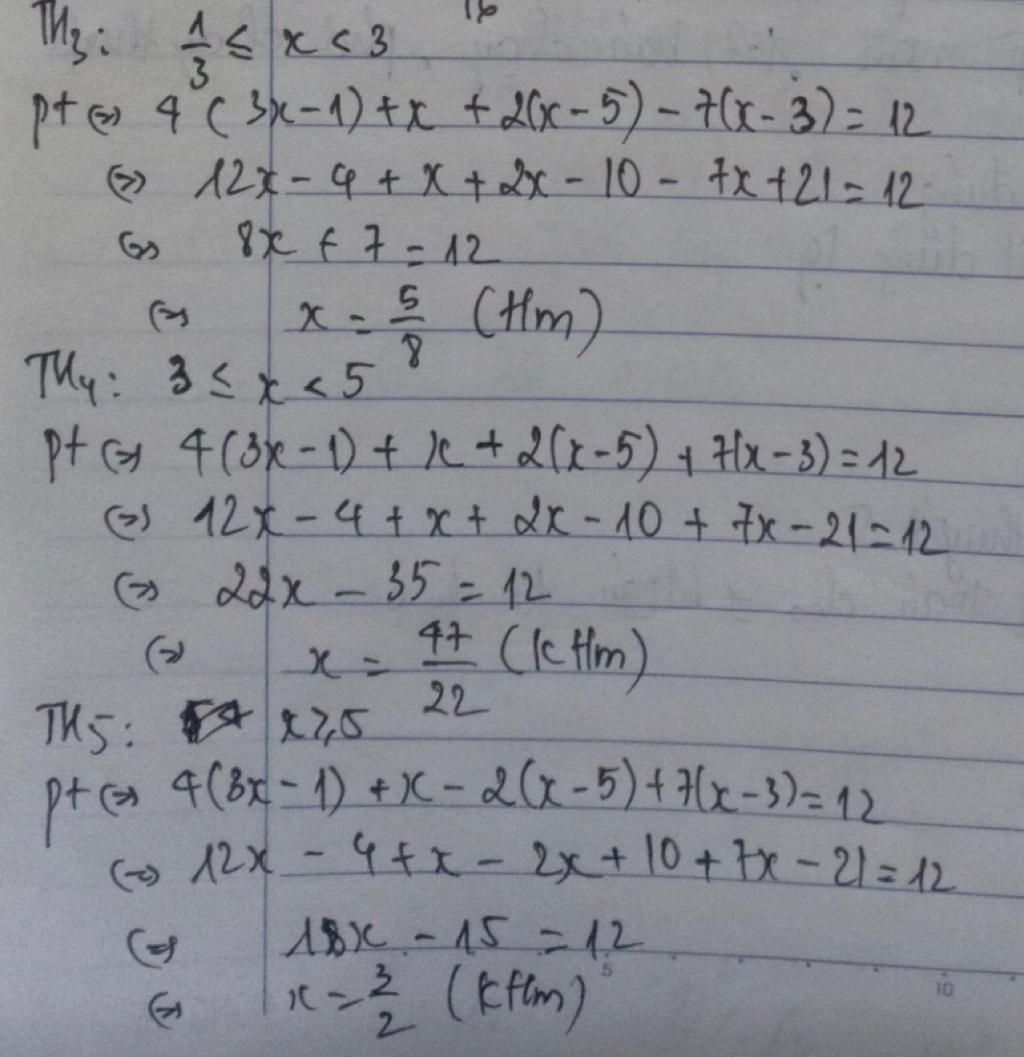 16
TH₃: 1/3 ≤ x < 3
pt ⇔ 4(3x-1)+x+2(x-5)-7(x-3)=12
⇔ 12x-4+x+2x-10-7x+21=12
⇔ 8x+7=12
⇔ x=5/8 (tlm)
TH₄: 3 ≤ x < 5
pt ⇔ 4(3x-1)+x+2(x-5)+7(x-3)=12
⇔ 12x-4+x+2x-10+7x-21=12
⇔ 22x-35=12
⇔ x=47/22 (ktlm)
TH₅: x≥5
pt ⇔ 4(3x-1)+x-2(x-5)+7(x-3)=12
⇔ 12x-4+x-2x+10+7x-21=12
⇔ 18x-15=12
⇔ x=3/2 (ktlm)
5 10